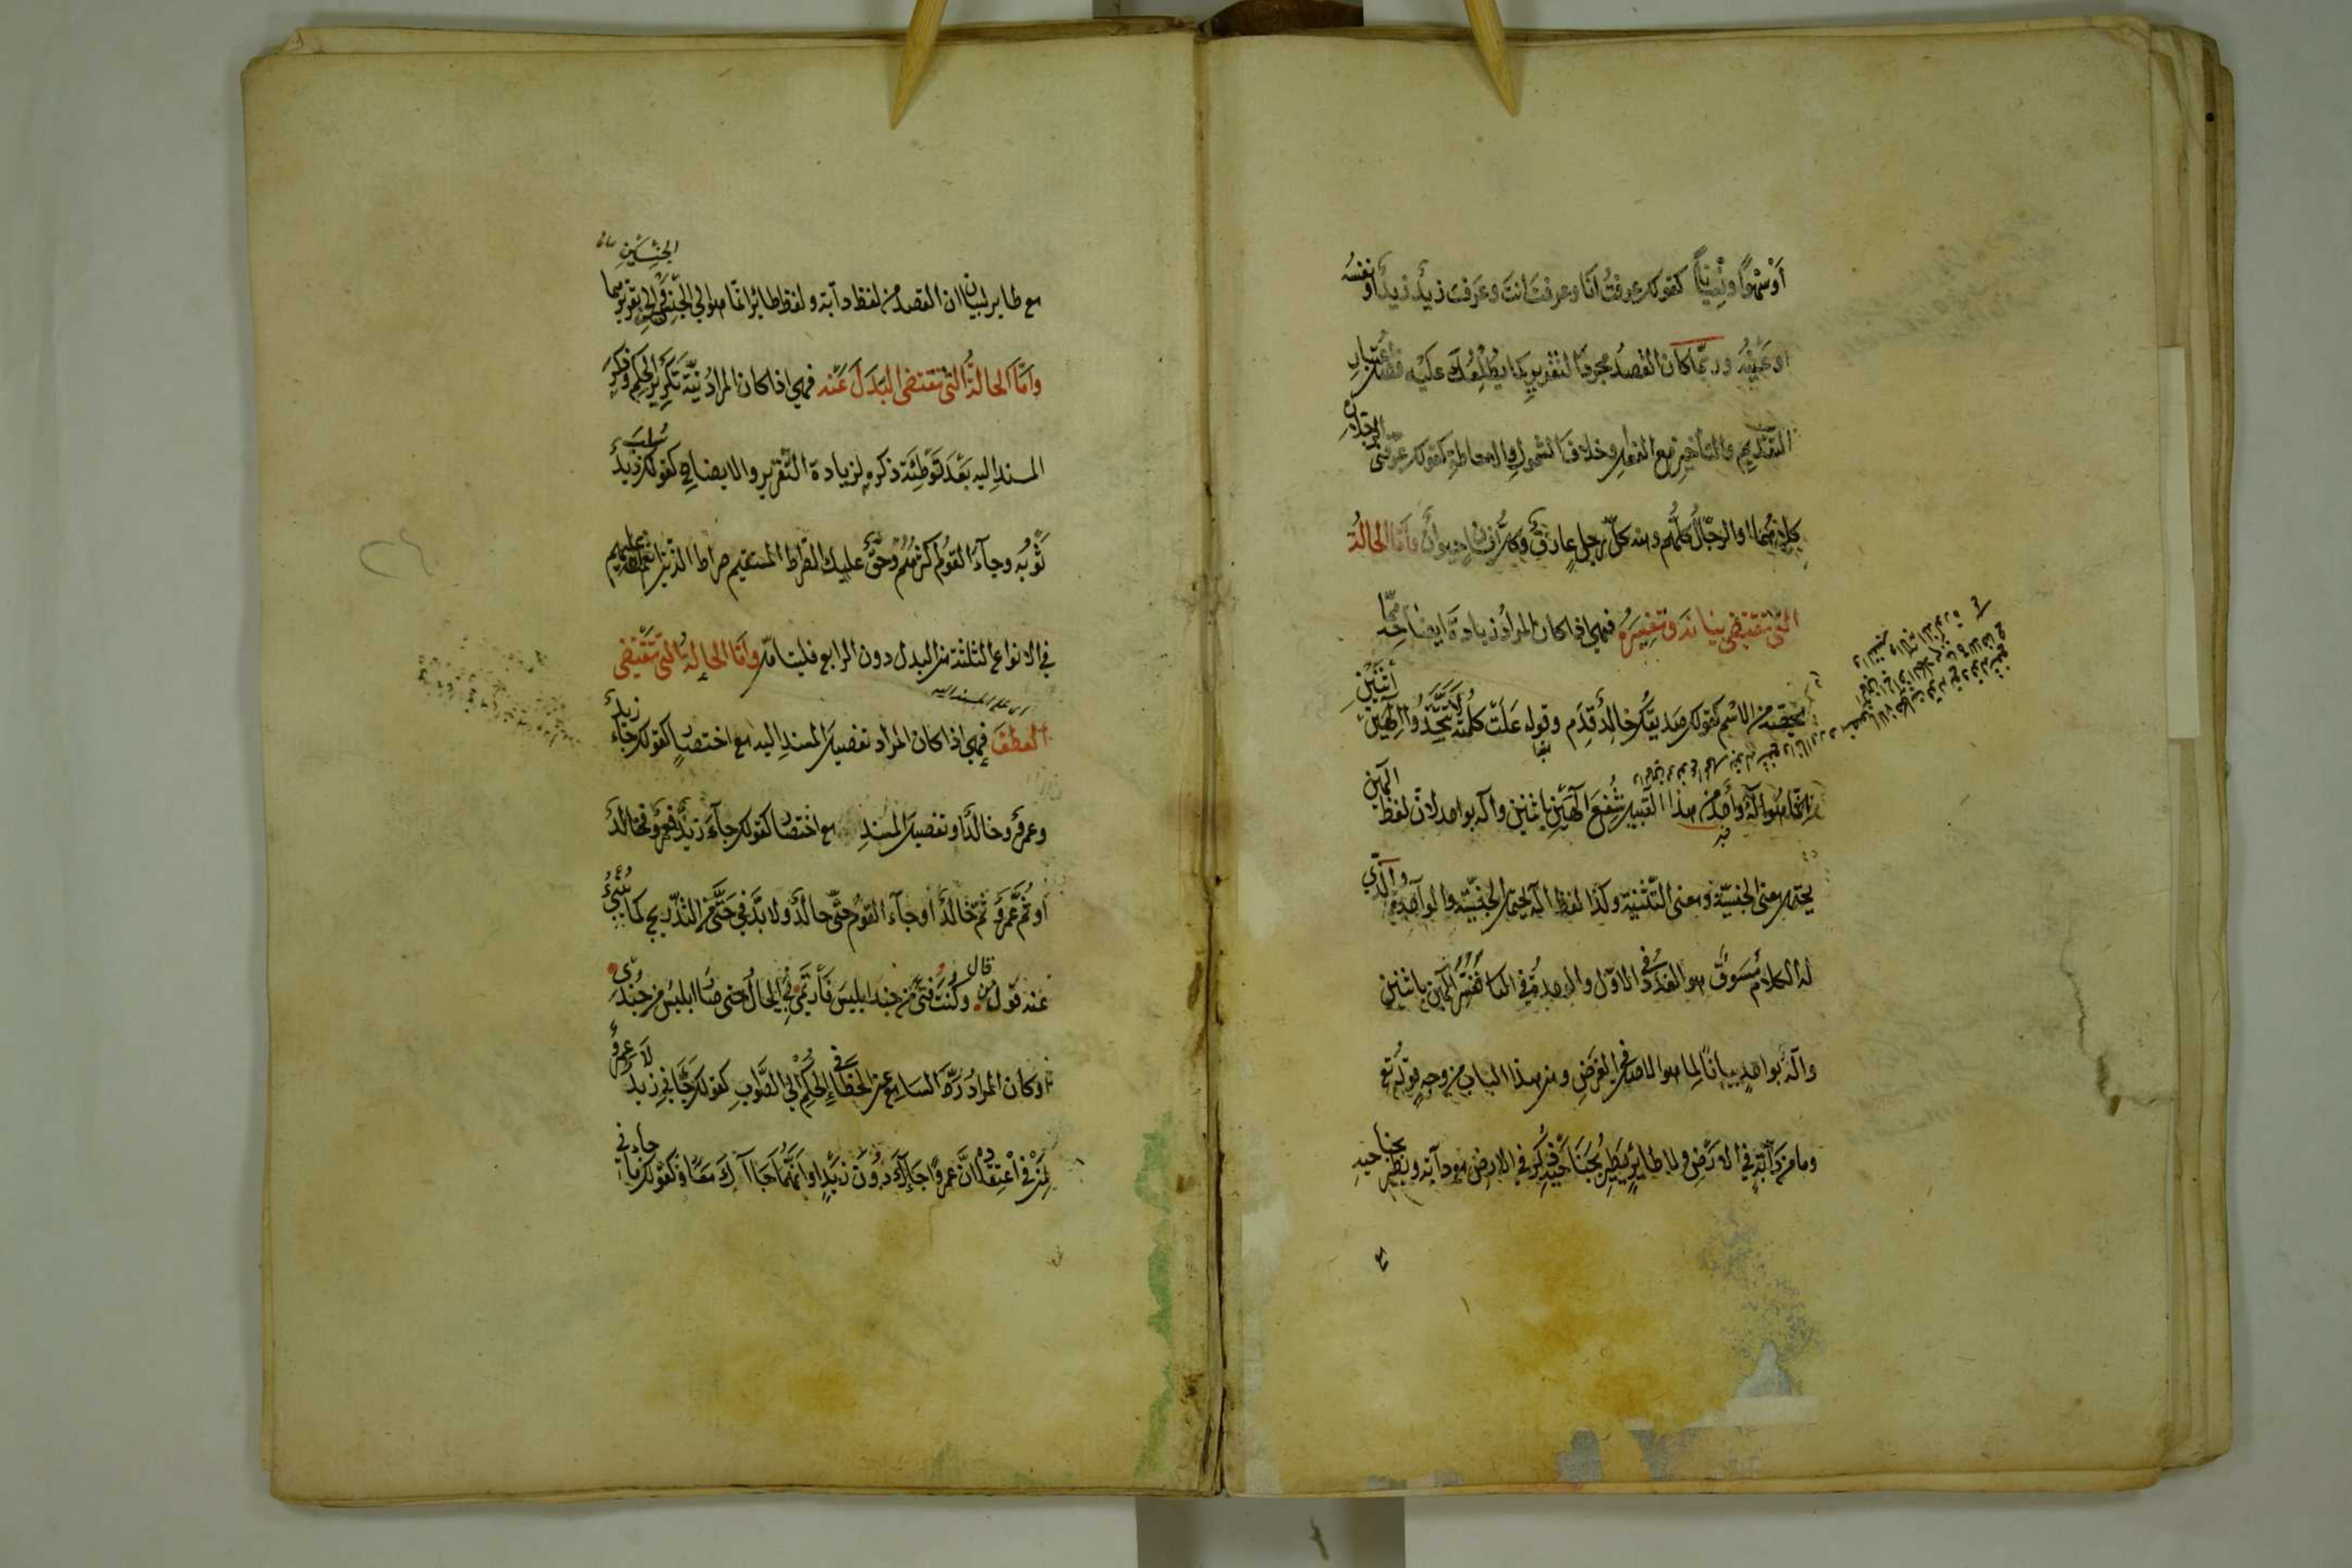 أو سهوا أو نسيانا كقولك عرفت أنا وعرفت أنت وعرف زيد زيد أو نفسه
أو عينه وربما كان القصد مجرد التقرير كما يطلعك عليه فصل اعتبار
التقديم والتأخير مع الفعل وخلاف الشمول والإحاطة كقولك عرفني الرجلان
كلاهما أو الرجال كلهم ومنه كل رجل عارف وكل إنسان حيوان وأما الحالة
التي تقتضي بيانه وتفسيره فهي إذا كان المراد زيادة إيضاحه بما
يخصه من الاسم كقولك صديقك خالد قدم وقوله علت كلمته لا تتخذوا إلهين اثنين
إنما هو إله واحد من هذا القبيل شفع إلهين باثنين وإله بواحد لأن لفظ إلهين
يحتمل معنى الجنسية ومعنى التثنية وكذا لفظ إله يحتمل الجنسية والوحدة والذي
له الكلام مسوق هو العدد في الأول والوحدة في الثاني ففسر إلهين باثنين
وإله بواحد بيانا لما هو الأصل في الغرض ومن هذا الباب من وجه قوله تع
وما من دابة في الأرض ولا طائر يطير بجناحيه ذكر في الأرض مع دابة ويطير بجناحيه
مع طاير لبيان أن القصد من لفظ دابة ولفظ طائر إنما هو إلى الجنسين وإلى تقريرهما
وأما الحالة التي تقتضي البدل عنه فهي إذا كان المراد نية تكرير الحكم وذكر
المسند إليه بعد توطئة ذكره لزيادة التقرير والإيضاح كقولك سلب زيد
ثوبه وجاء القوم أكثرهم وحق عليك الصراط المستقيم صراط الذين أنعم الله عليهم
في الأنواع الثلثة من البدل دون الرابع فليتأمل وأما الحالة التي تقتضي
العطف فهي إذا كان المراد تفصيل المسند إليه مع اختصار كقولك جاء زيد
وعمرو وخالد أو تفصيل المسند مع اختصار كقولك جاء زيد فعمرو فخالد
أو ثم عمرو ثم خالد أو جاء القوم حتى خالد ولا بد في حتى من التدريج كما ينبئ
عنه قول من قال وكنت فتى من جند إبليس فارتمى بي الحال حتى صار إبليس من جندي
أو كان المراد رد السامع عن الخطأ في الحكم إلى الصواب كقولك جاءني زيد لا عمرو
لمن في اعتقاده أن عمرا جاءك دون زيد أو أنهما جاآك معا وكقولك ما جاءني